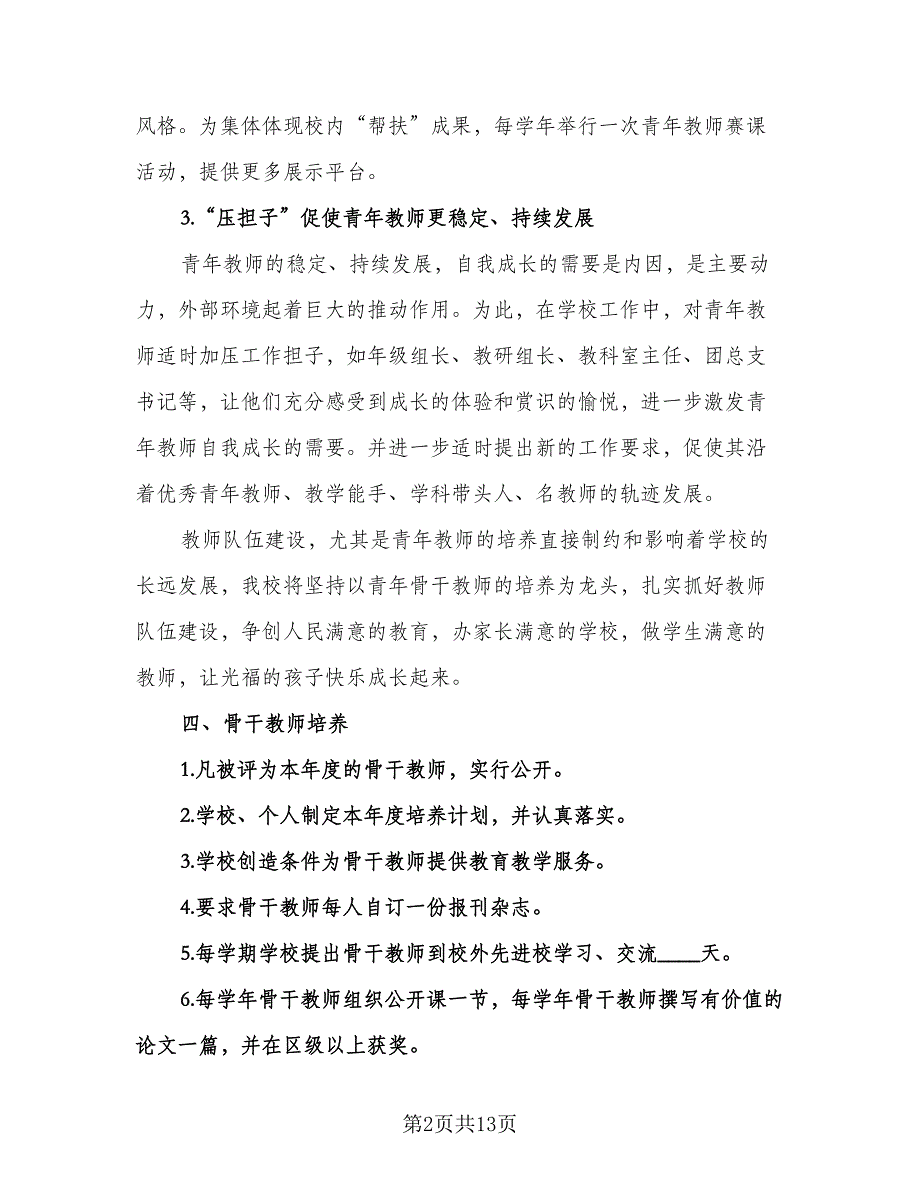 风格。为集体体现校内“帮扶”成果，每学年举行一次青年教师赛课
活动，提供更多展示平台。
3.“压担子”促使青年教师更稳定、持续发展
青年教师的稳定、持续发展，自我成长的需要是内因，是主要动
力，外部环境起着巨大的推动作用。为此，在学校工作中，对青年教
师适时加压工作担子，如年级组长、教研组长、教科室主任、团总支
书记等，让他们充分感受到成长的体验和赏识的愉悦，进一步激发青
年教师自我成长的需要。并进一步适时提出新的工作要求，促使其沿
着优秀青年教师、教学能手、学科带头人、名教师的轨迹发展。
教师队伍建设，尤其是青年教师的培养直接制约和影响着学校的
长远发展，我校将坚持以青年骨干教师的培养为龙头，扎实抓好教师
队伍建设，争创人民满意的教育，办家长满意的学校，做学生满意的
教师，让光福的孩子快乐成长起来。
四、骨干教师培养
1.凡被评为本年度的骨干教师，实行公开。
2.学校、个人制定本年度培养计划，并认真落实。
3.学校创造条件为骨干教师提供教育教学服务。
4.要求骨干教师每人自订一份报刊杂志。
5.每学期学校提出骨干教师到校外先进校学习、交流____天。
6.每学年骨干教师组织公开课一节，每学年骨干教师撰写有价值的
论文一篇，并在区级以上获奖。
第2页共13页